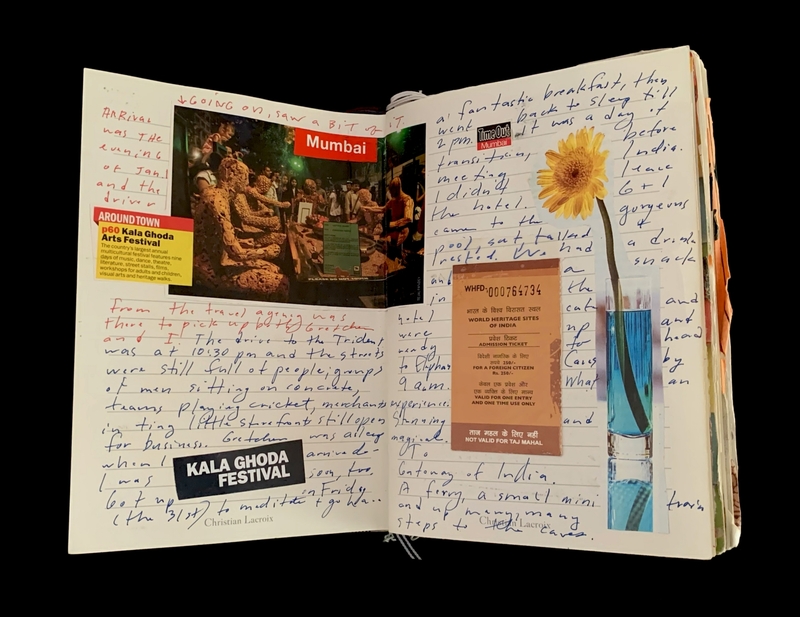 ↓GOING ON, SAW A BIT OF IT
ARRIVAL
was THE
evening
of Jan
and the
driver
Mumbai
AROUND TOWN
p60 Kala Ghoda
Arts Festival
The country's largest annual
multicultural festival features nine
days of music, dance, theatre,
literature, street stalls, films,
workshops for adults and children,
visual arts and heritage walks.
from the travel agency was
there to pick up both Gretchen
and I. The drive to the Trident
was at 10:30 pm and the streets
were still full of people; groups
of men sitting on concrete,
teams playing cricket, merchants
in tiny little storefront still open
for business. Gretchen was alleep
when I arrived-
I was soon, too.
KALA GHODA
FESTIVAL
Got up on Friday
(the 31st) to meditate + go ha..
Christian Lacroix
a fantastic breakfast, then
went back to sleep till
2 pm. It was a day of
Time Out
Mumbai
transition, before
meeting India.
I didn't leave
the hotel. G + I
came to the gorgeous
pool, sat talked +
rested. We had a drink
and a snack
in the
hotel cafe and
were up and
ready for head
to Elephan Caves by
9 am. What an
experience.
Stunning and
magical.
To
Gateway of India.
A ferry, a small mini train
and up many, many
steps to the caves.
Christian Lacroix
WHFD: 000764734
भारत के विश्व विरासत स्थल
WORLD HERITAGE SITES
OF INDIA
प्रवेश टिकट
ADMISSION TICKET
विदेशी नागरिक के लिए
रुपये 250/-
FOR A FOREIGN CITIZEN
Rs. 250/-
केवल एक प्रवेश और
एक व्यक्ति के लिए मान्य
VALID FOR ONE ENTRY
AND ONE TIME USE ONLY
ताज महल के लिए नहीं
NOT VALID FOR TAJ MAHAL